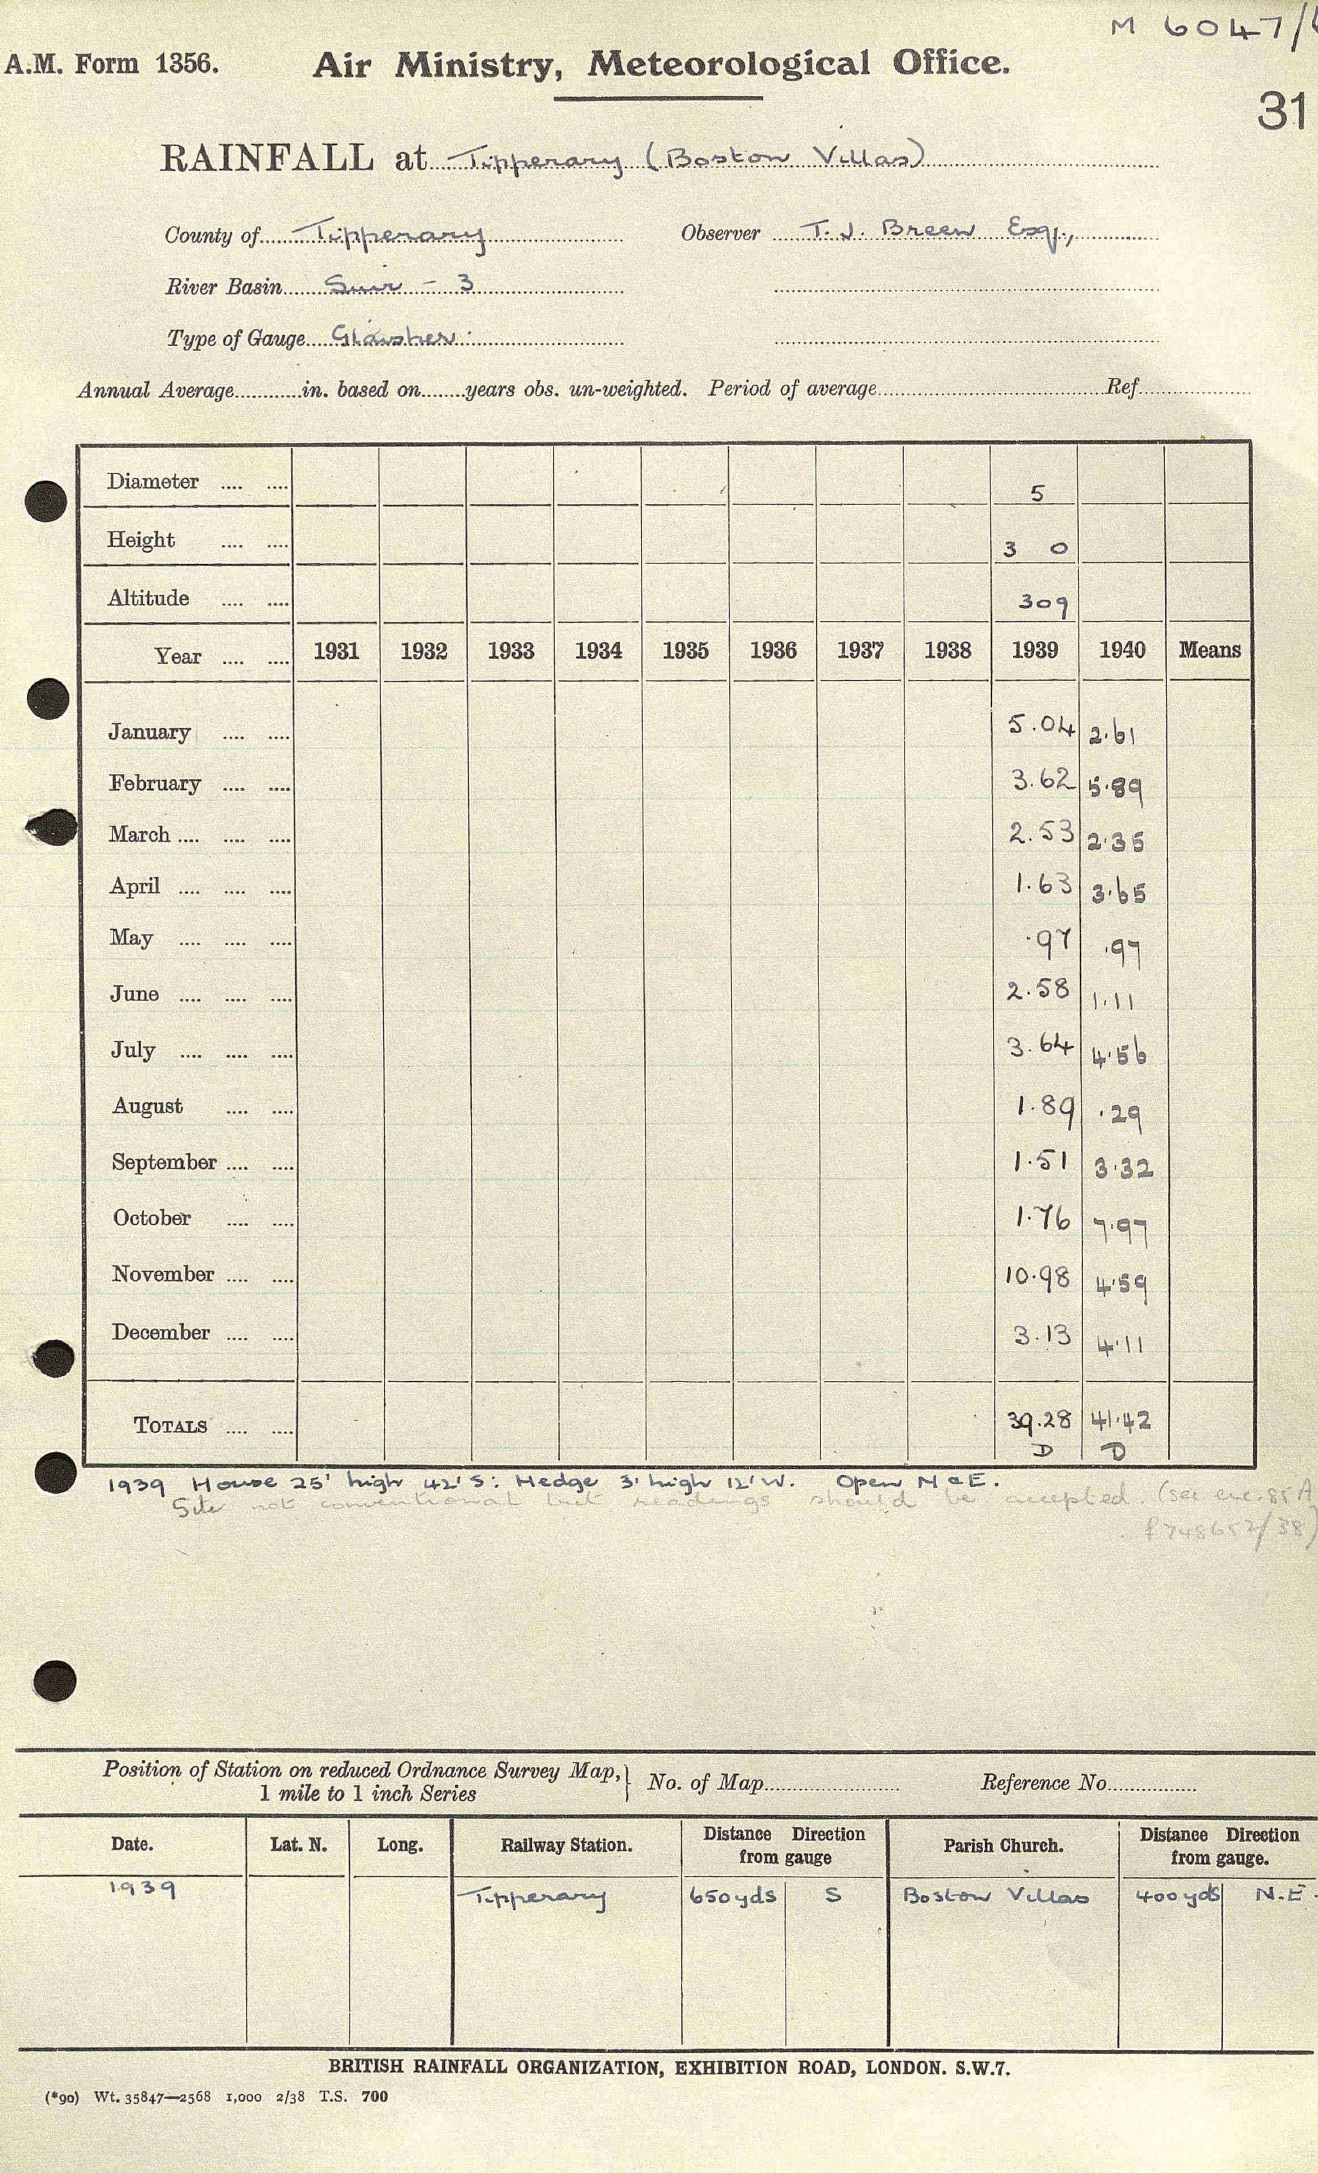 M 6047/
A.M. Form 1356. Air Ministry, Meteorological Office.
31
RAINFALL at Tipperary (Boston Villas)
County of Tipperary Observer T. J. Breen Esq.,
River Basin Suir - 3
Type of Gauge Glaisher
Annual Average............in. based on........years obs. un-weighted. Period of average.............Ref.............
Diameter .... .... 5
Height .... .... 3 0
Altitude .... .... 309
Year .... .... 1931 1932 1933 1934 1935 1936 1937 1938 1939 1940 Means
January .... .... 5.04 2.61
February .... .... 3.62 5.89
March .... .... .... 2.53 2.35
April .... .... .... 1.63 3.65
May .... .... .... .97 .97
June .... .... .... 2.58 1.11
July .... .... .... 3.64 4.56
August .... .... 1.89 .29
September .... .... 1.51 3.32
October .... .... 1.76 7.97
November .... .... 10.98 4.59
December .... .... 3.13 4.11
TOTALS .... .... 39.28 41.42
D D
1939 House 25' high 42' S: Hedge 3' high 12' W. Open N & E.
Site not conventional but readings should be accepted. (see enc. 85A
748652/38)
Position of Station on reduced Ordnance Survey Map, } No. of Map............ Reference No............
1 mile to 1 inch Series
Date. Lat. N. Long. Railway Station. Distance Direction from gauge Parish Church. Distance Direction from gauge.
1939 Tipperary 650 yds S Boston Villas 400 yds N.E.
BRITISH RAINFALL ORGANIZATION, EXHIBITION ROAD, LONDON. S.W.7.
(*90) Wt. 35847—2568 1,000 2/38 T.S. 700